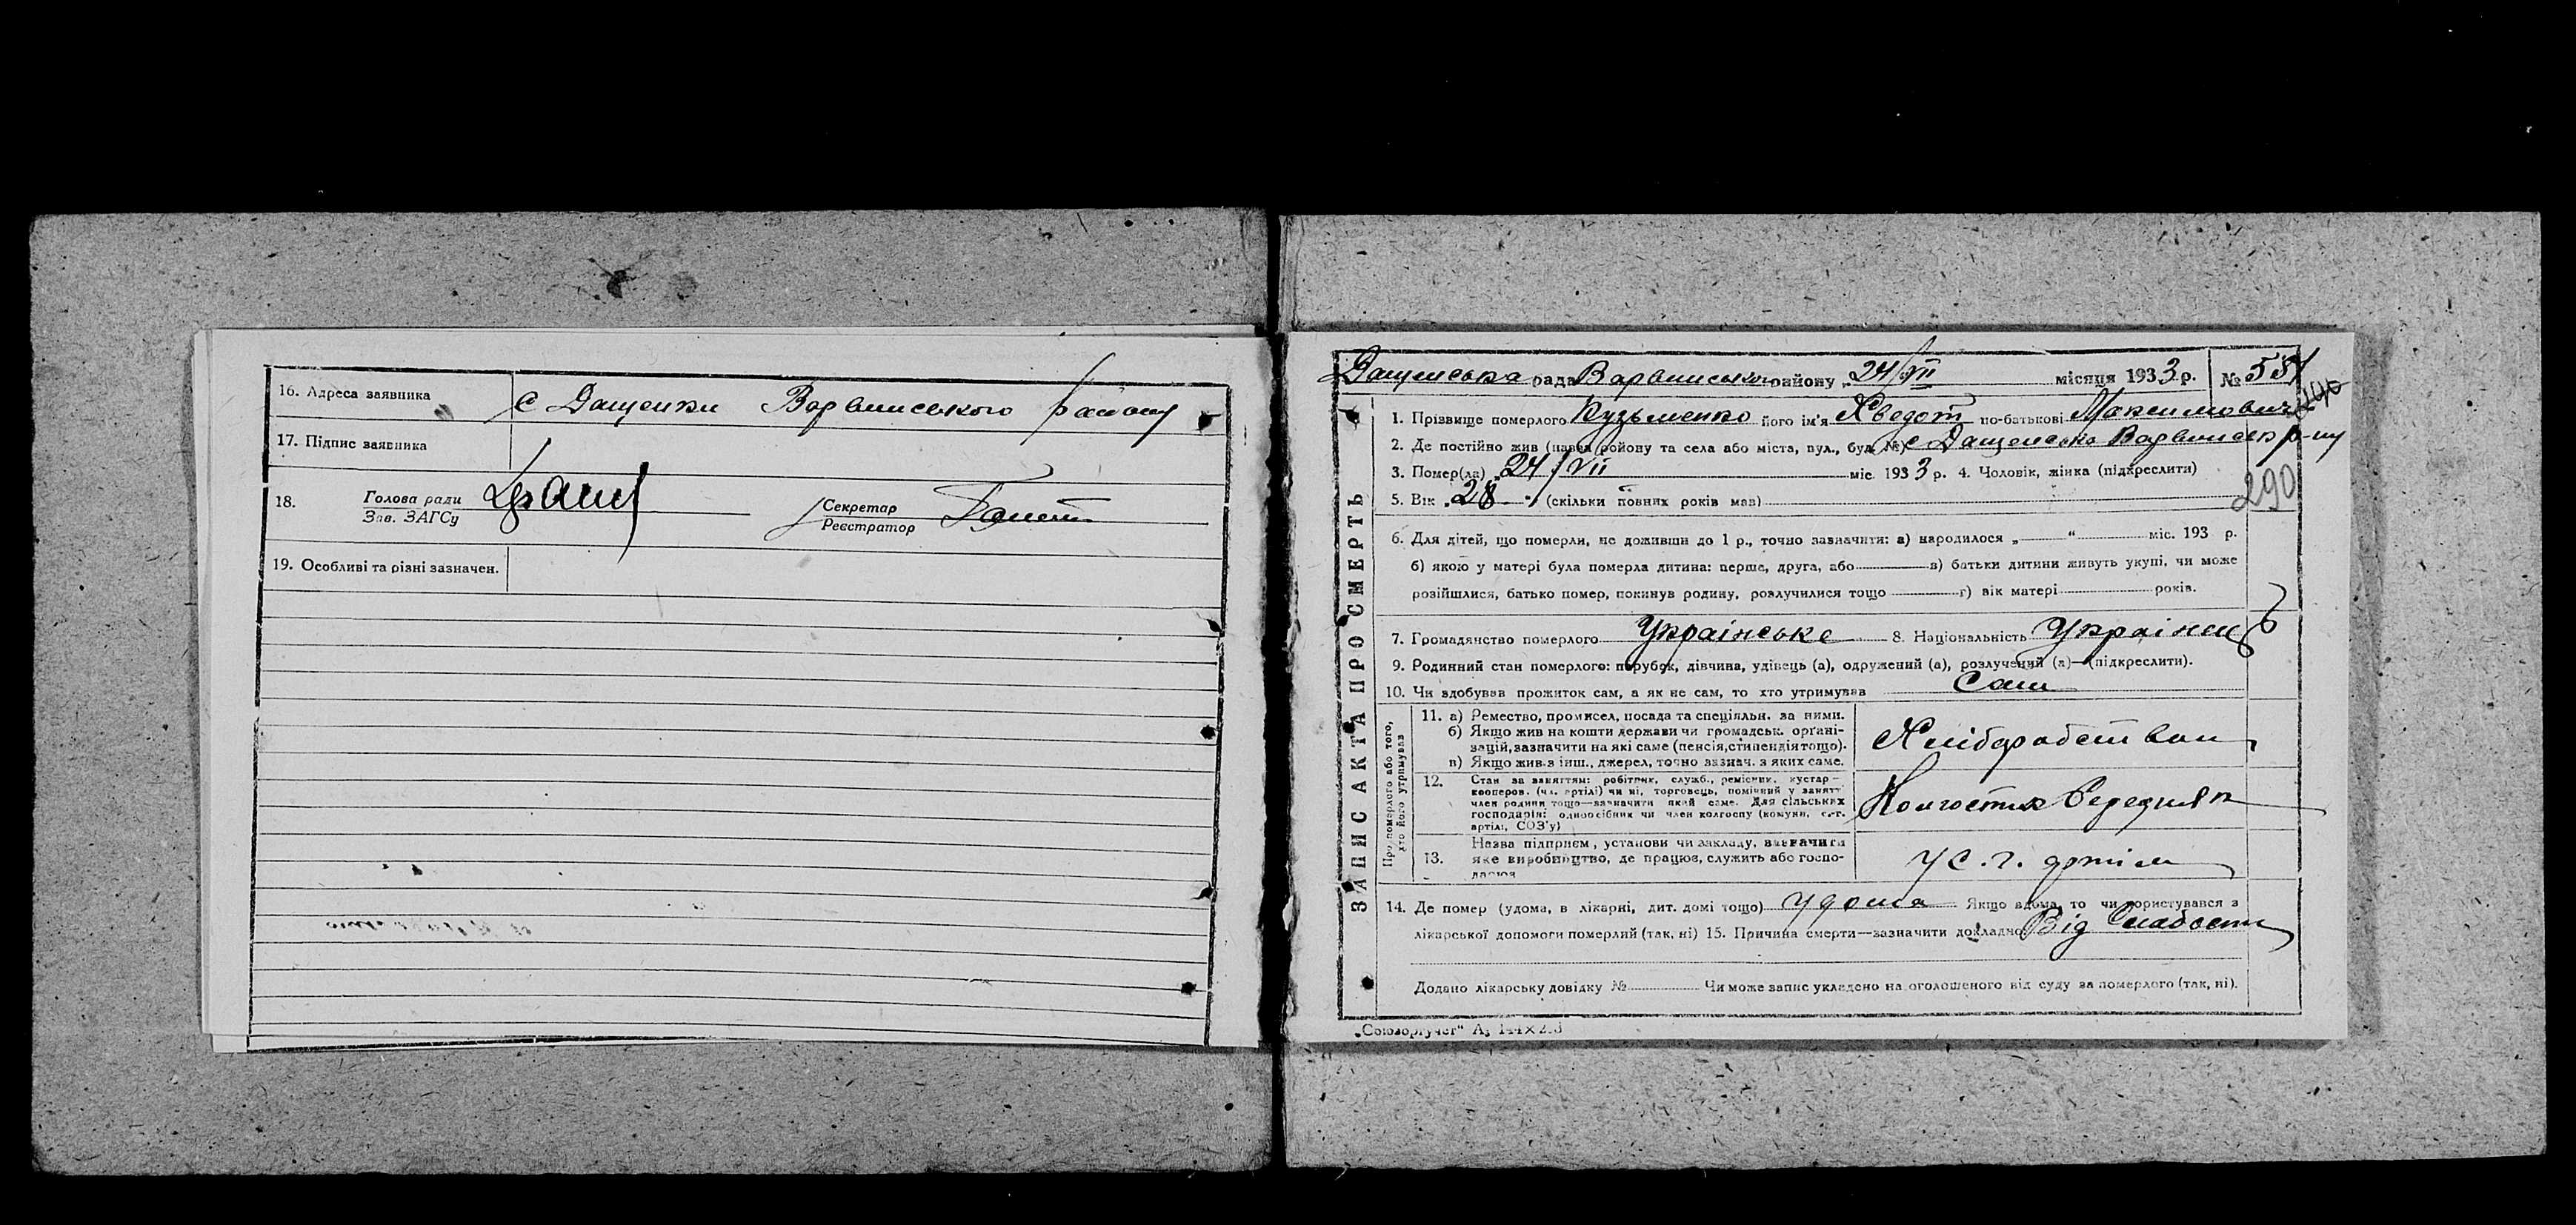 16. Адреса заявника с Дащенки Варвинського району
17. Підпис заявника
18. Голова ради Секретар
Зав. ЗАГСу Реєстратор
19. Особливі та різні зазначен.
ЗАПИС АКТА ПРО СМЕРТЬ
Дащенська рада Варвинського району „24/VII місяця 1933 р. №
1. Прізвище померлого Кузьменко його ім'я Хведот по-батькові Максимович
2. Де постійно жив (назва району та села або міста, вул., буд. №) с Дащенська Варвинськ р-ну
3. Помер(ла) „24/VII міс. 1933 р. 4. Чоловік, жінка (підкреслити)
5. Вік 28 (скільки повних років мав)
290
6. Для дітей, що померли, не доживши до 1 р., точно зазначити: а) народилося „ “ міс. 193 р.
б) якою у матері була померла дитина: перше, друга, або в) батьки дитини живуть укупі, чи може
розійшлися, батько помер, покинув родину, розлучилися тощо г) вік матері років.
7. Громадянство померлого Українське 8. Національність Українець
9. Родинний стан померлого: парубок, дівчина, удівець (а), одружений (а), розлучений (а)—(підкреслити).
10. Чи здобував прожиток сам, а як не сам, то хто утримував Сам
Про померлого або того, хто його утримував
11. а) Ремество, промисел, посада та спеціяльн. за ними.
б) Якщо жив на кошти держави чи громадськ. органі-
зацій, зазначити на які саме (пенсія, стипендія тощо).
в) Якщо жив з інш., джерел, точно зазнач. з яких саме.
Хліборобством
12. Стан за заняттям: робітник, служб., ремісник, кустар—
кооперов. (чл. артілі) чи ні, торговець, помічний у занятт
член родини тощо—зазначити який саме. Для сільських
господарів: одноосібник чи член колгоспу (комуни, с.-г.
артілі, СОЗ'у)
Колгоспник Середняк
13. Назва підприєм, установи чи закладу, зазначити
яке виробництво, де працює, служить або госпо-
дарює
У С. г. артілі
14. Де помер (удома, в лікарні, дит. домі тощо) Удома Якщо вдома, то чи користувався з
лікарської допомоги померлий (так, ні) 15. Причина смерти—зазначити докладно Від Слабости
Додано лікарську довідку № Чи може запис укладено на оголошеного від суду за померлого (так, ні).
„Союзоргучет“